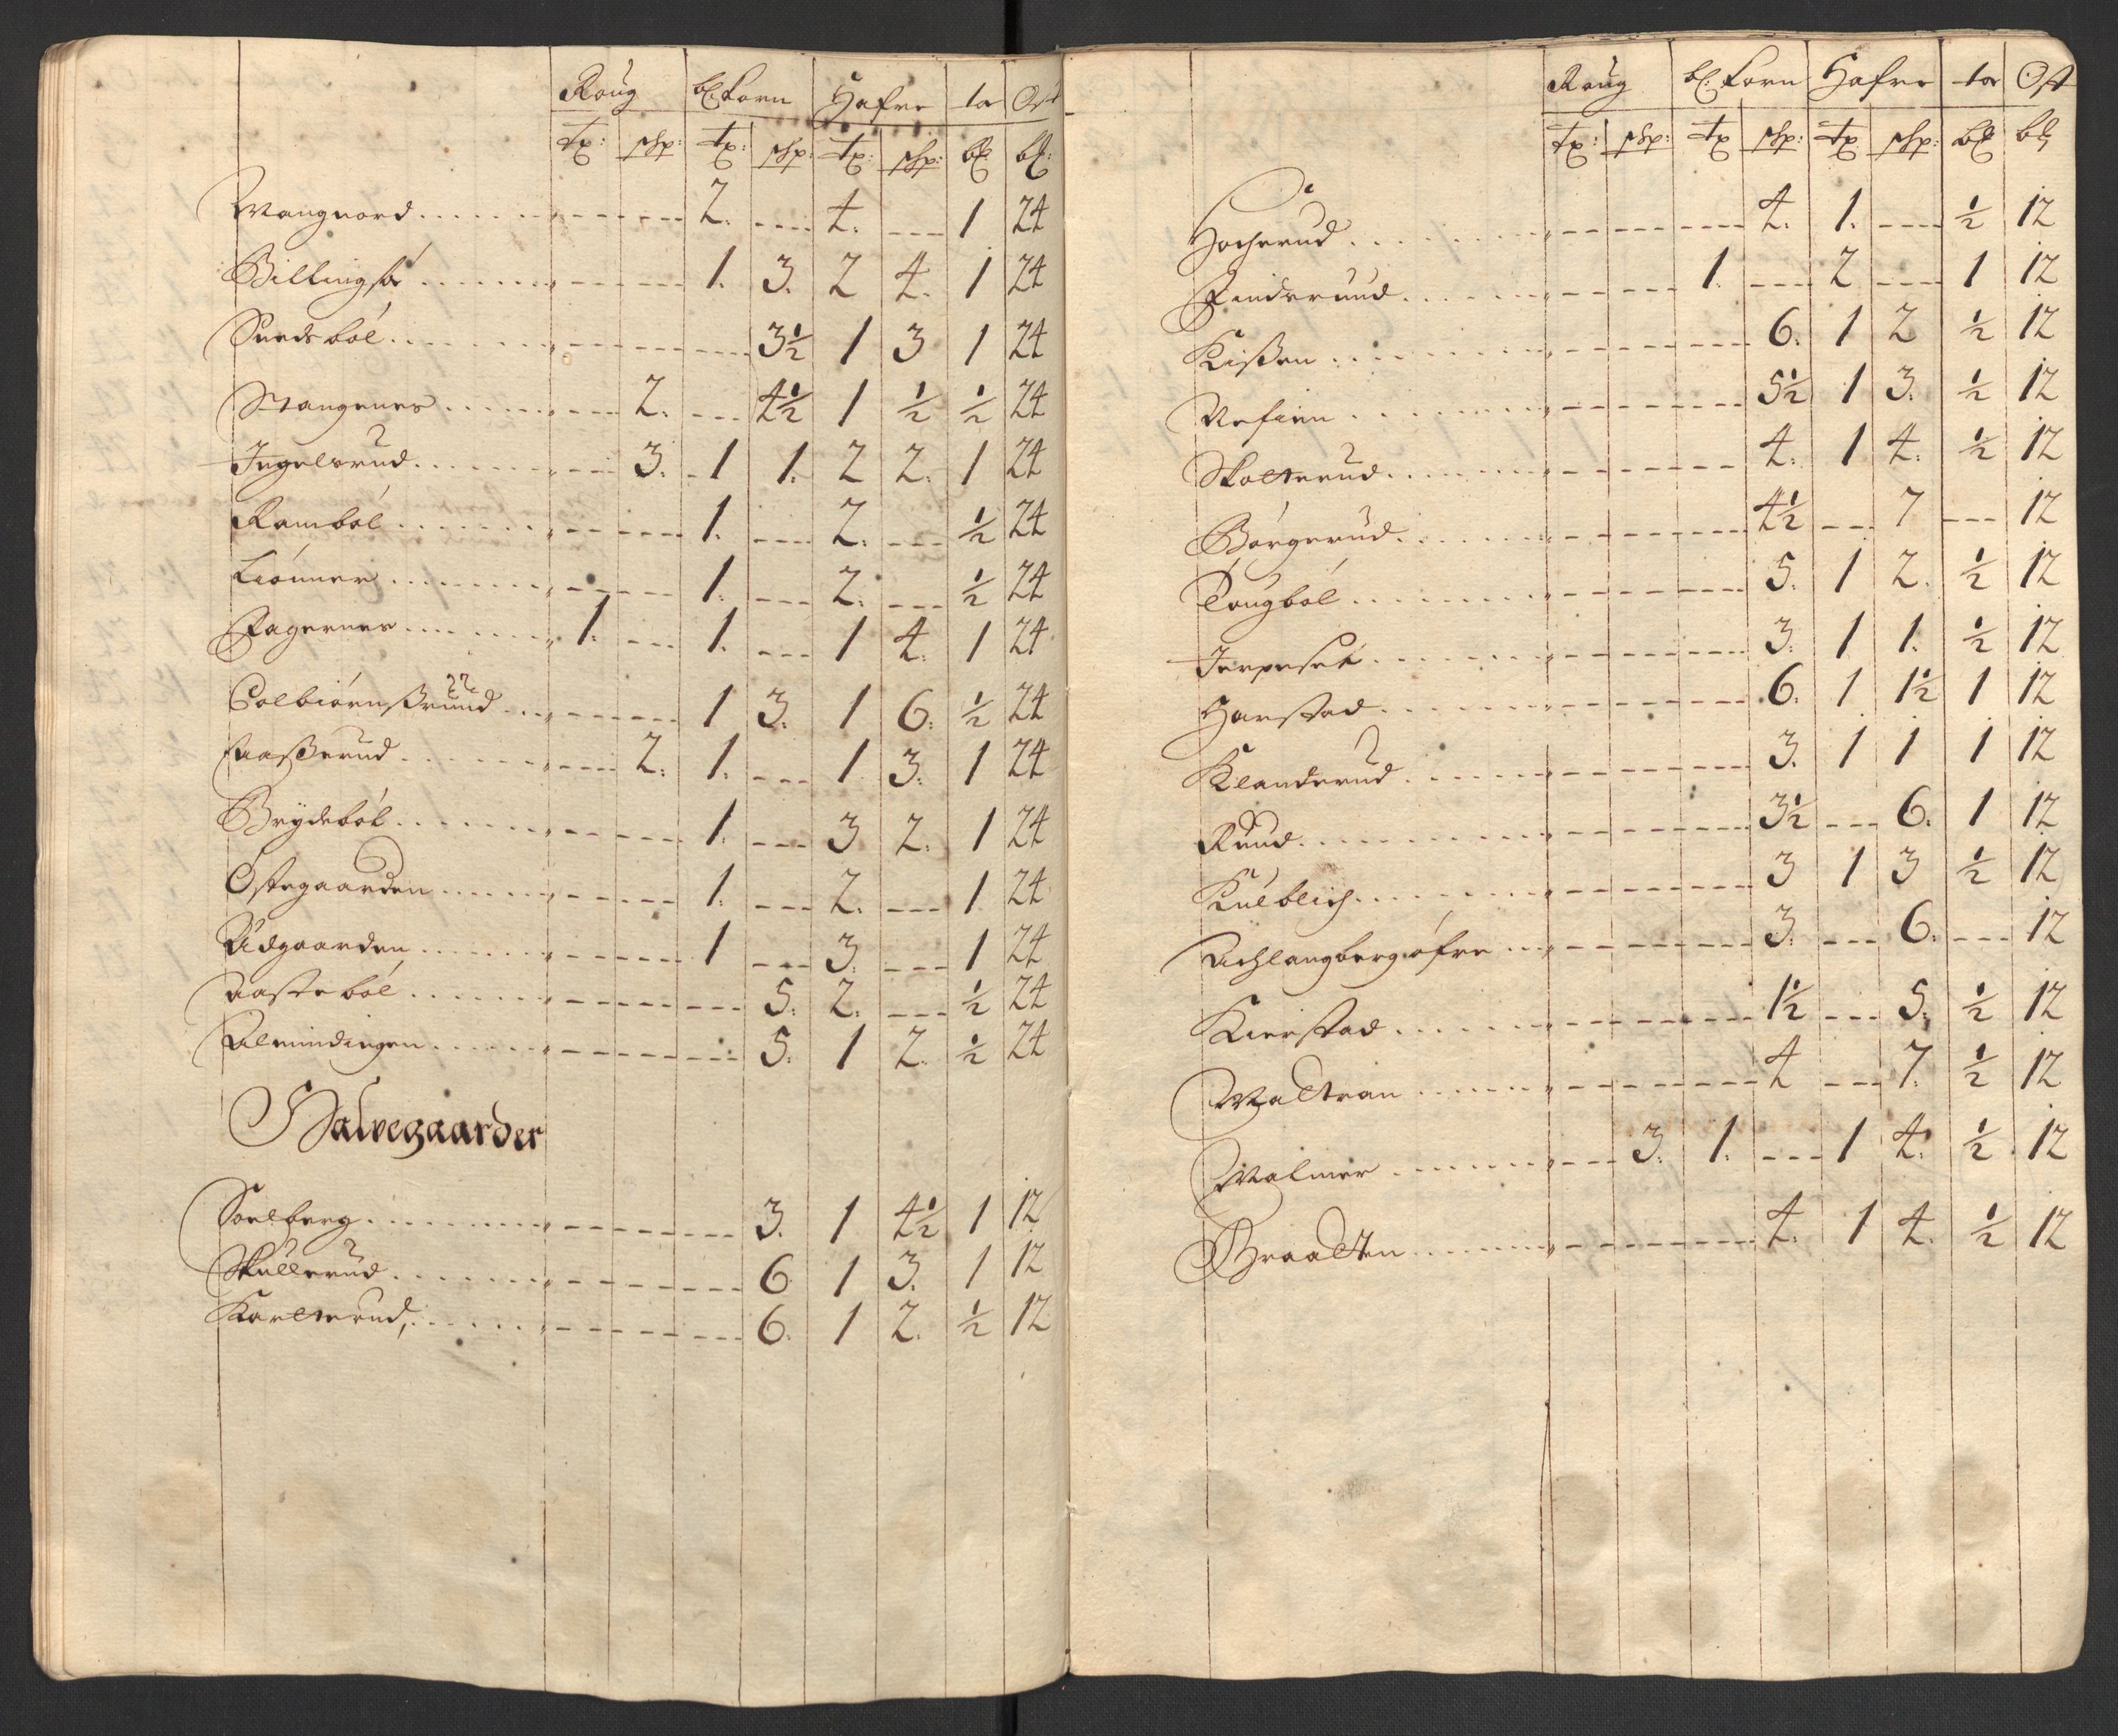 Roug bl: korn Hafre tar Ost
tꝫ: skp: tꝫ: skp: tꝫ: skp: bꝫ bꝫ:
Wangnord 2. 4. 1 24
Billingsø 1. 3. 2 4. 1 24
Sundsböl 3½ 1 3 1 24
Stangenes 2. 4½ 1 ½ ½ 24
Ingelsrud 3. 1 1. 2 2. 1 24
Ramböl 1. 2. ½ 24
Liönner 1. 2. ½ 24
Fagernes 1. 1. 1 4. 1 24
Colbiörnsrüud 1 3. 1 6. ½ 24
Aasserud 2. 1. 1 3. 1 24
Brydeböl 1. 3 2. 1 24
Ostegaarden 1. 2. 1 24
Udgaarden 1 3. 1 24
Aasteböl 5. 2. ½ 24
Almindingen 5. 1 2. ½ 24
Halvegaarder
Soelberg 3. 1 4½ 1 12
Skullerud 6 1 3. 1 12
Karlterud 6. 1 2. ½ 12
Roug bl: korn Hafre tar Ost
tꝫ: skp: tꝫ skp: tꝫ skp: bꝫ bꝫ
Hocherud 4. 1. ½ 12
Findsruud 1. 2 1 12
Kissen 6. 1 2 ½ 12
Refuen 5½ 1 3. ½ 12
Skolterud 4. 1 4. ½ 12
Börgerud 4½ 7 12
Tougböl 5. 1 2. ½ 12
Jerpeset 3. 1 1. ½ 12
Harstad 6. 1 1½ 1 12
Klanderud 3. 1 1 1 12
Ruud 3½ 6. 1 12
Kulblich 3 1 3 ½ 12
Achlangberg öfre 3. 6. 12
Kierstad 1½ 5. ½ 12
Waltran 4 7. ½ 12
Walmer 3. 1. 1 4. ½ 12
Braaten 4. 1 4. ½ 12